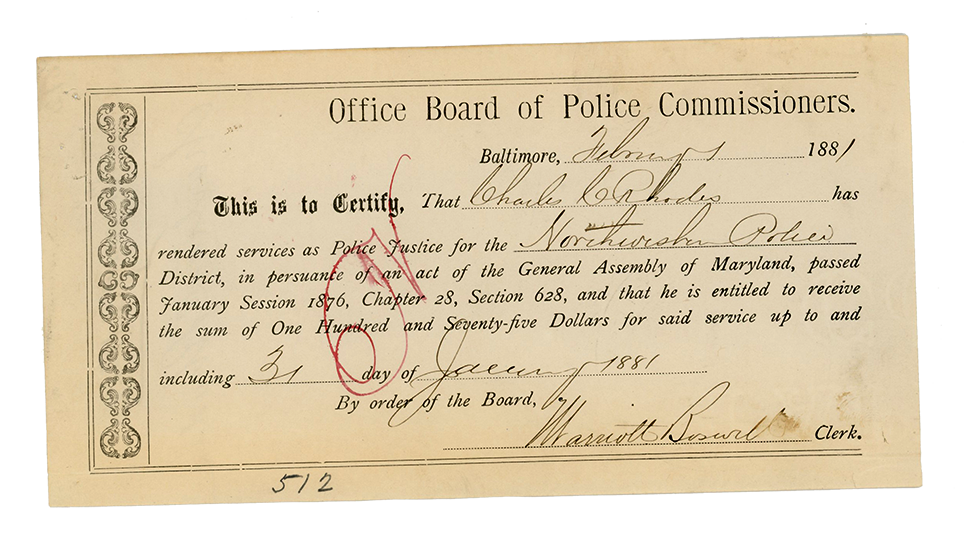 Office Board of Police Commissioners.
Baltimore, February 1 1881
This is to Certify, That Charles C Rhodes has
rendered services as Police Justice for the Northwestern Police
District, in persuance of an act of the General Assembly of Maryland, passed
January Session 1876, Chapter 28, Section 628, and that he is entitled to receive
the sum of One Hundred and Seventy-five Dollars for said service up to and
including 31 day of January 1881
By order of the Board,
Marriott Boswell Clerk.
512